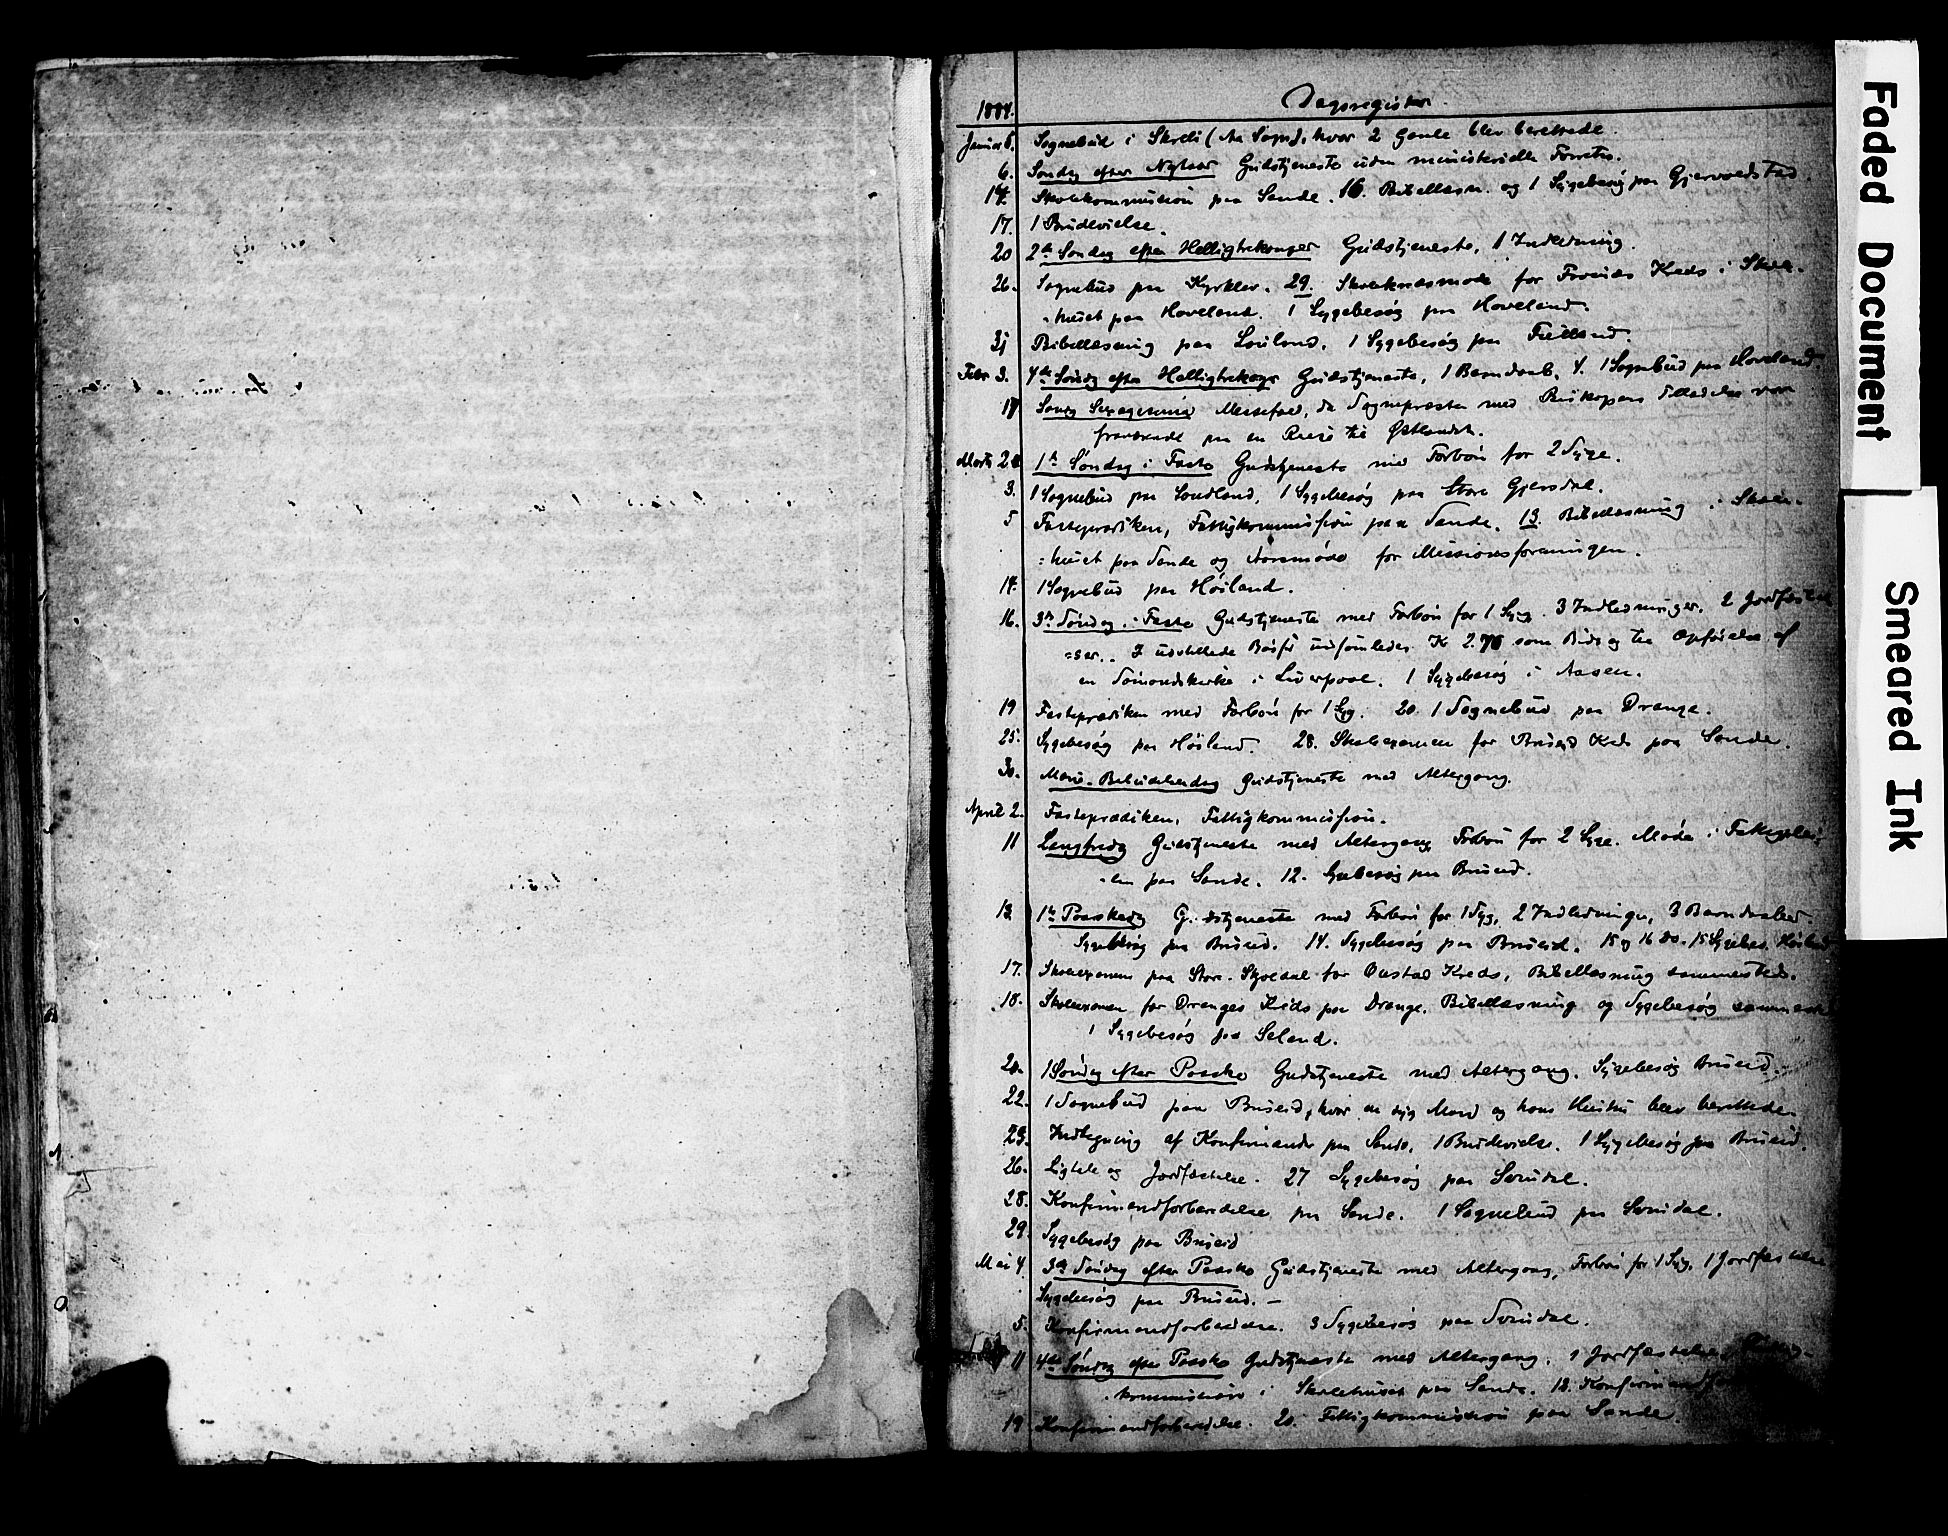 1884.
Dagsregister.
Januar 6. Sognebud i Skreli (Aa Sogn), hvor 2 Gamle blev berettede.
6. Søndag efter Nytaar Gudstjeneste uden ministerielle Forretn.
14. Skolekommission paa Sande. 16. Bibellæsn. og 1 Sygebesøg paa Gjervoldstad.
17. 1 Brudevielse.
20 2de Søndag efter Helligtrekonger Gudstjeneste, 1 Indledning.
26. Sognebud paa . 29. Skolekredsmøde for Kreds i Skole-
huset paa Hoveland. 1 Sygebesøg paa Hoveland.
31 Bibellæsning paa . 1 Sygebesøg paa .
Febr 3. 4de Søndag efter Helligtrekonger Gudstjeneste, 1 Barndaab. 4. 1 Sognebud paa Hoveland.
17 Søndag Sexagesima Messefald, da Sognepræsten med Biskopens Tilladelse var
fraværende paa en Reise til Østlandet.
Marts 2. 1ste Søndag i Faste Gudstjeneste med Forbøn for 2 Syge.
3. 1 Sognebud paa Sandland, 1 Sygebesøg paa Store Gjersdal.
5 Fasteprædiken, Fattigkommission paa Sande. 13. Bibellæsning i Skole-
huset paa Sande og Aarsmøde for Missionsforeningen.
14. 1 Sognebud paa Høiland.
16. 3die Søndag i Faste Gudstjeneste med Forbøn for 1 Syg. 3 Indledninger. 2 Jordfæstel
ser. I udstillede Bøsse indsamledes Kr 2.70 som Bidrag til Opførelse af
en Sømandskirke i Liverpool. 1 Sygebesøg i Aasen.
19 Fasteprædiken med Forbøn for 1 Syg. 20. 1 Sognebud paa Drange.
25. Sygebesøg paa Høiland. 28. Skoleexamen for Bruseid Kreds paa Sande.
30. Mariæ Bebudelsesdag Gudstjeneste med Altergang.
April 2. Fasteprædiken, Fattigkommission.
11 Langfredag Gudstjeneste med Altergang Forbøn for 2 Syge. Møde i
paa Sande. 12. Sygebesøg paa Bruseid.
13. 1ste Paaskedag Gudstjeneste med Forbøn for 1 Syg, 2 Indledninger, 3 Barndaab.
Sygebesøg paa Bruseid. 14. Sygebesøg paa Bruseid. 15 og 16 Do. 15 Sygebes. Høiland
17. Skoleexamen paa Store for Kreds, Bibellæsning sammesteds.
18. Skoleexamen for Dranges Kreds paa Drange. Bibellæsning og Sygebesøg sammesteds
1 Sygebesøg paa Seland.
20. 1 Søndag efter Paaske Gudstjeneste med Altergang. Sygebesøg Bruseid.
22. 1 Sognebud paa Bruseid, hvor en syg Mand og hans Hustru blev berettede.
23. Indtegning af Konfirmander paa Sande, 1 Brudevielse. 1 Sygebesøg paa Bruseid.
26. Ligtale og Jordfæstelse. 27 Sygebesøg paa Svindal.
28. Konfirmandforberedelse paa Sande. 1 Sognebud paa Svindal.
29. Sygebesøg paa Bruseid
Mai 4 3die Søndag efter Paaske Gudstjeneste med Altergang, Forbøn for 1 Syg, 1 Jordfæstelse
Sygebesøg paa Bruseid. –
5. Konfirmandforberedelse. 3 Sygebesøg paa Svindal.
11 4de Søndag efter Paaske Gudstjeneste med Altergang. 1 Jordfæstelse.
kommission i Skolehuset paa Sande. 12.
19 Konfirmandforberedelse. 20. Fattigkommission paa Sande.
Faded Document
Smeared Ink